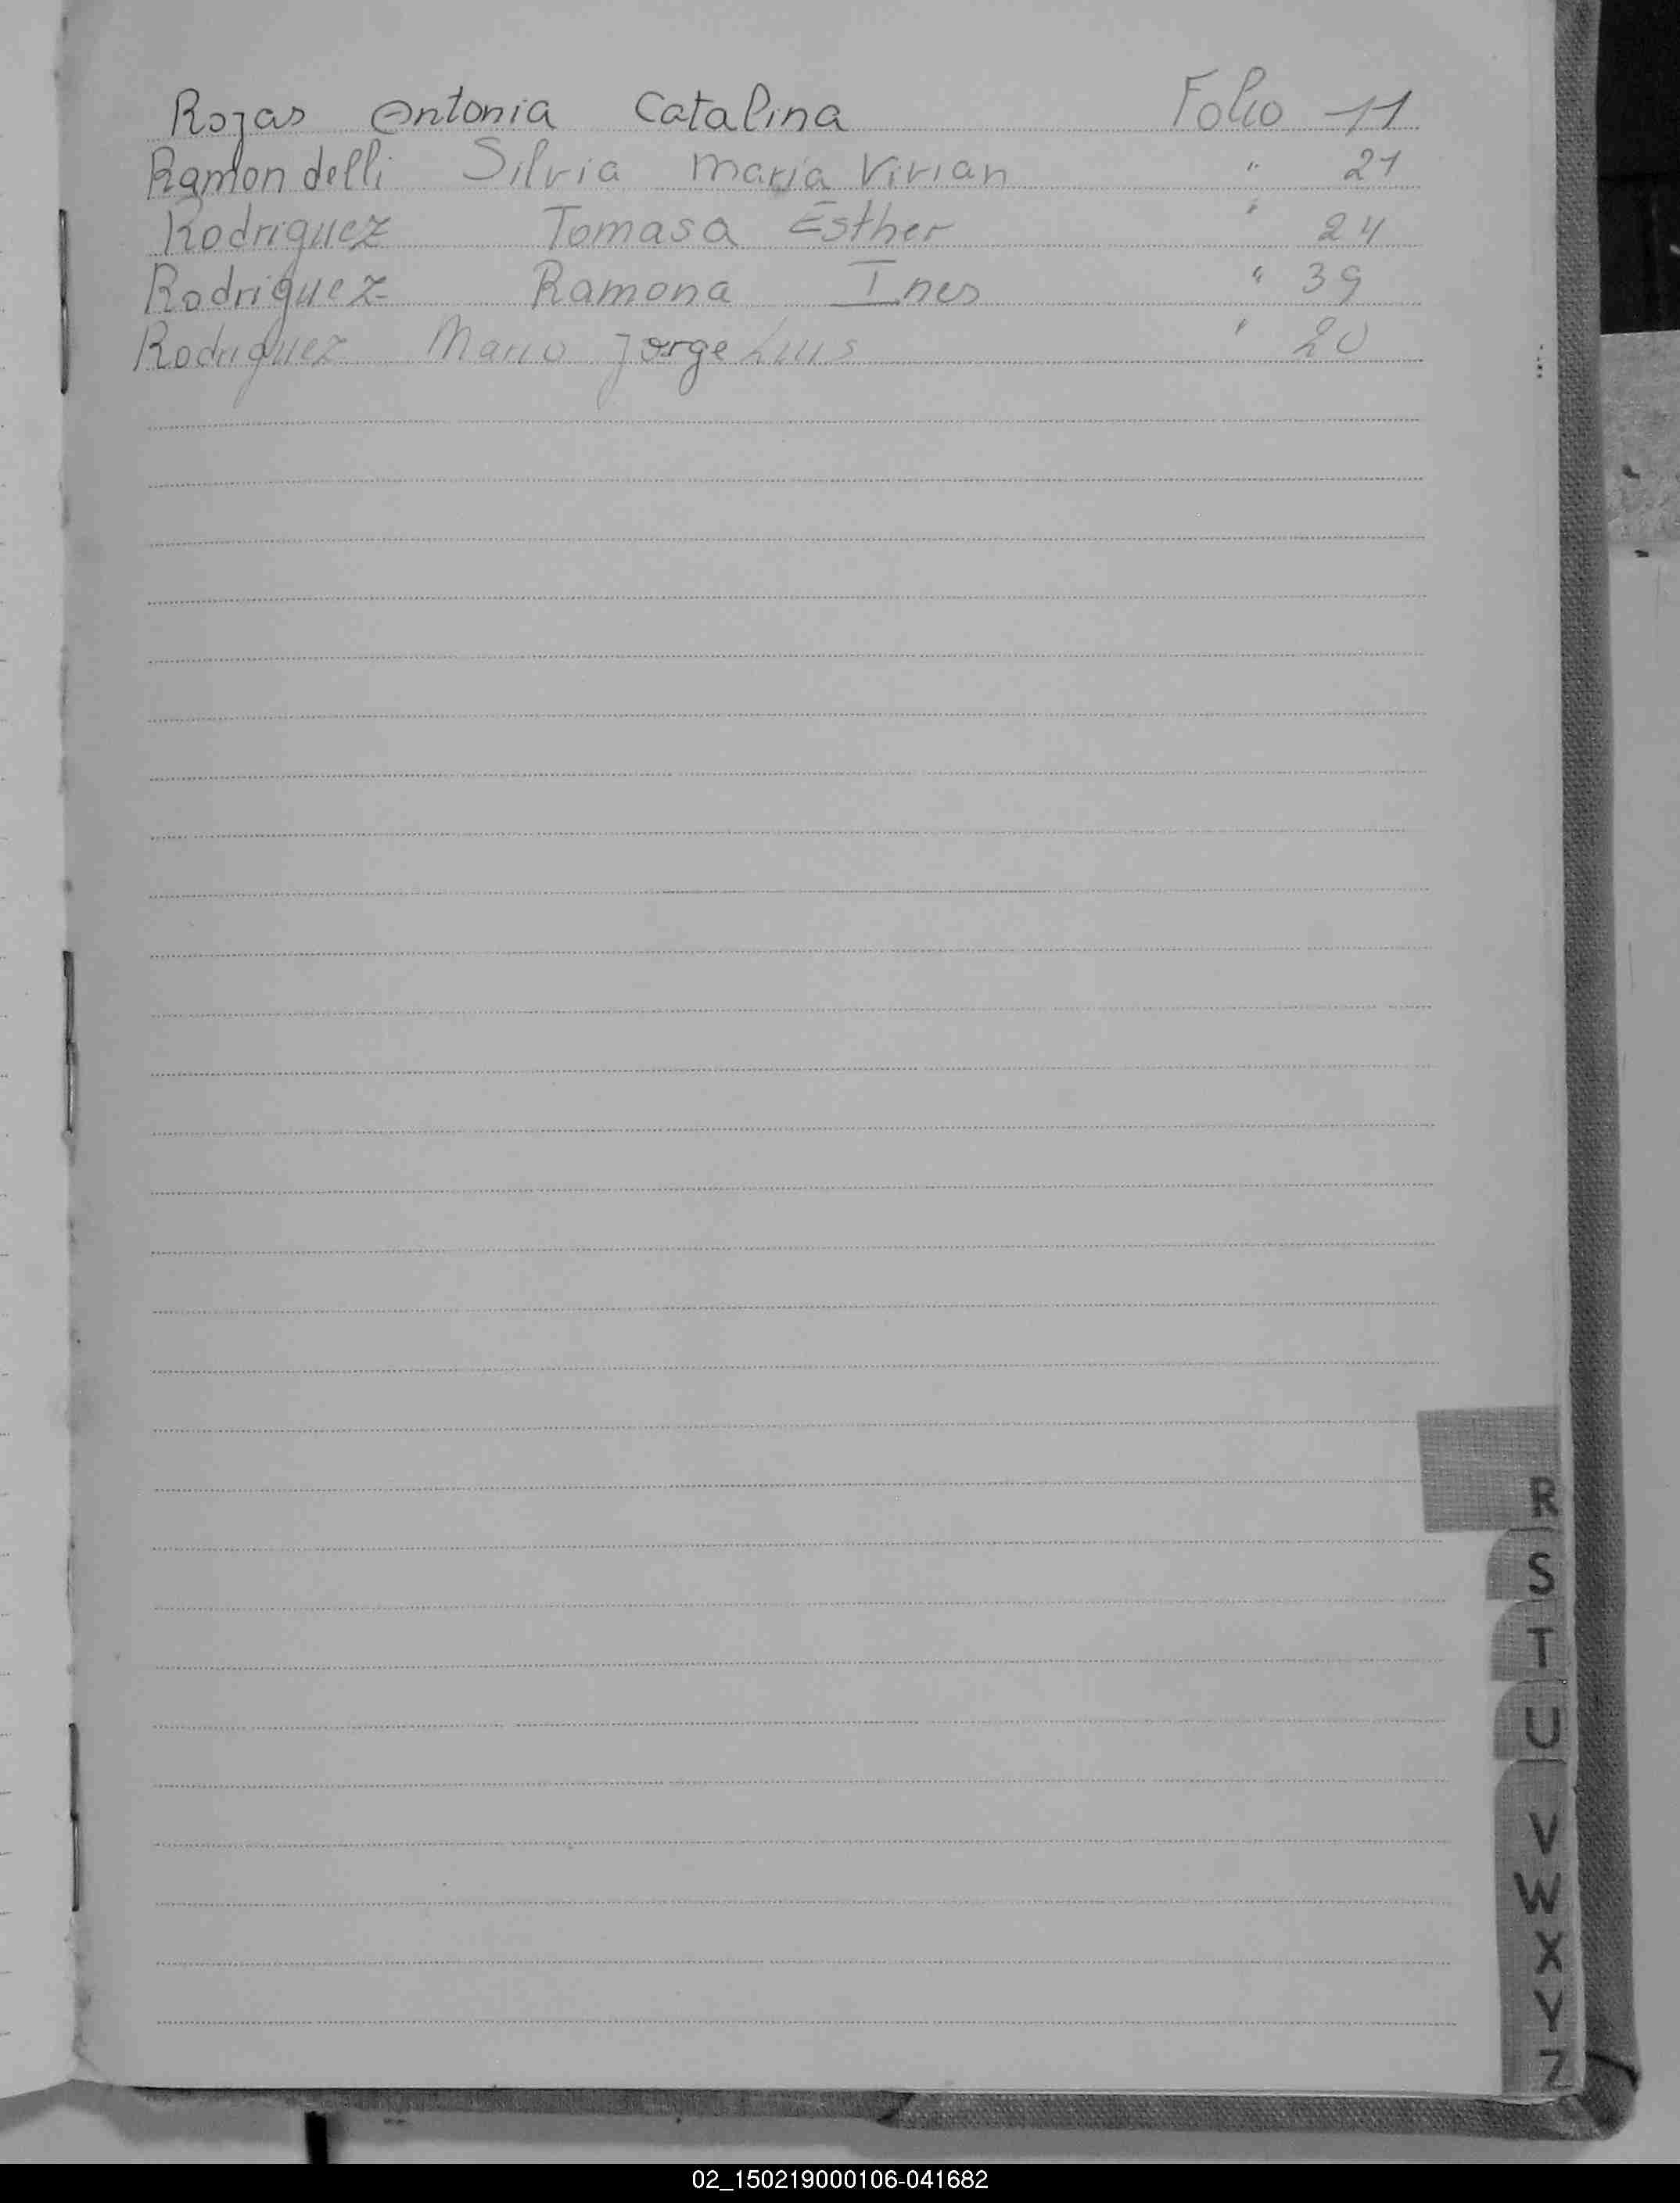 Rojas Antonia Catalina Folio 11
Ramondelli Silvia Maria Vivian " 21
Rodriguez Tomasa Esther " 24
Rodriguez Ramona Ines " 39
Rodriguez Mario Jorge Luis " 20
R
S
T
U
V
W
X
Y
Z
02_150219000106-041682